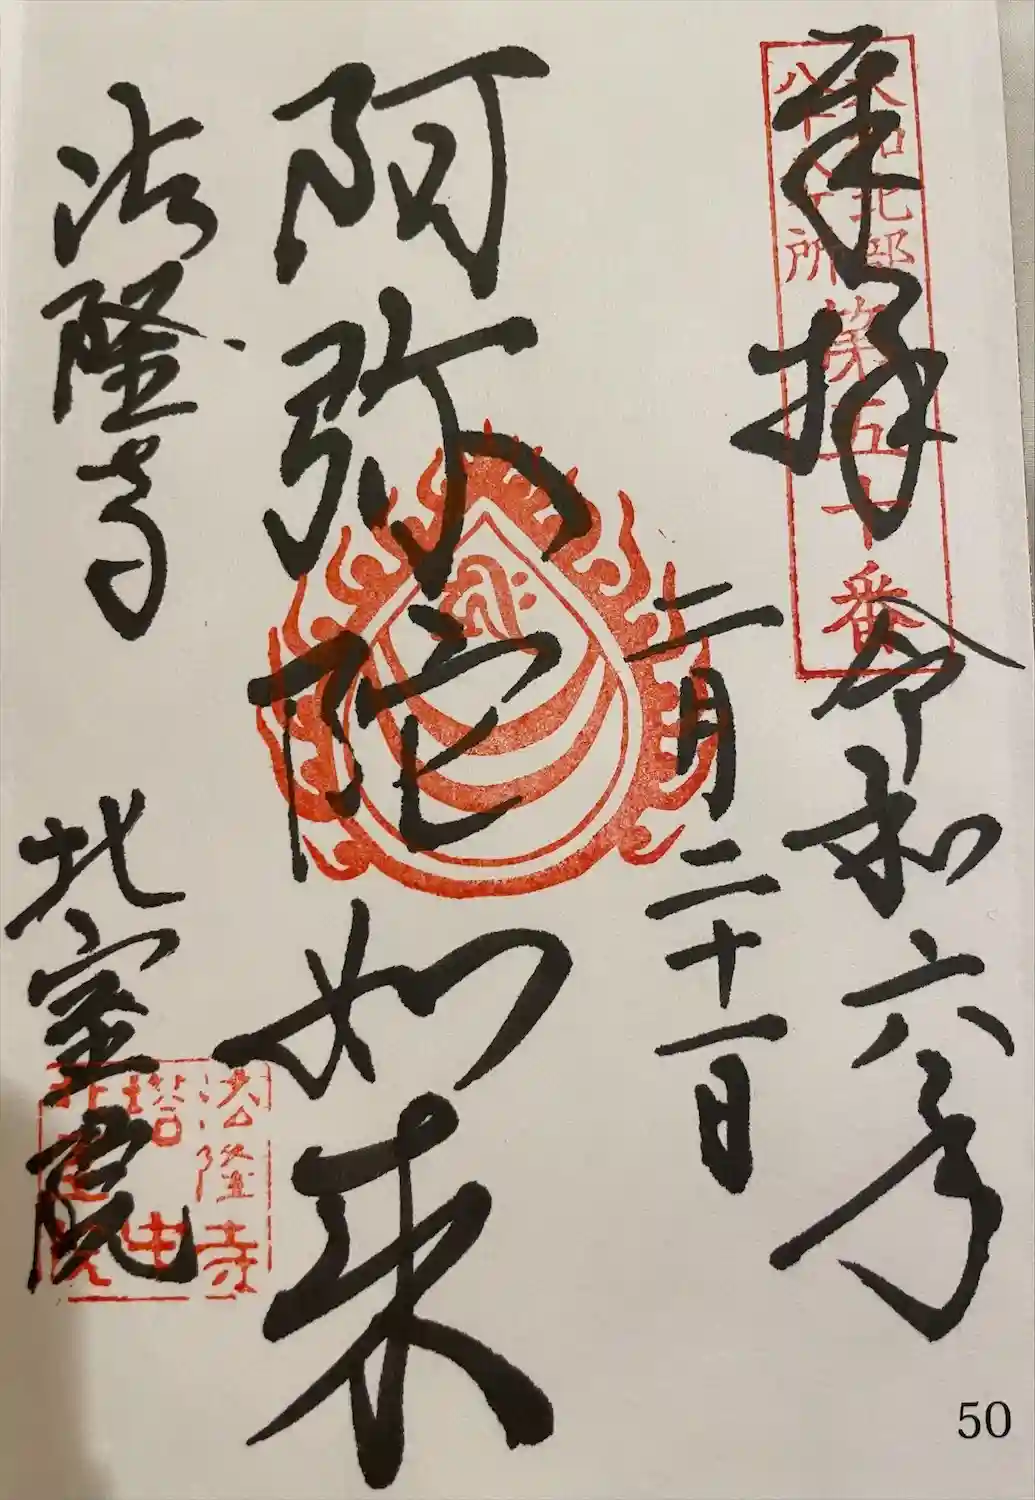 奉拝
大和北部
八十八ヶ所
第五十番
令和六年
二月二十一日
阿弥陀如来
法隆寺 北室院
法隆寺
塔中
北室院
50